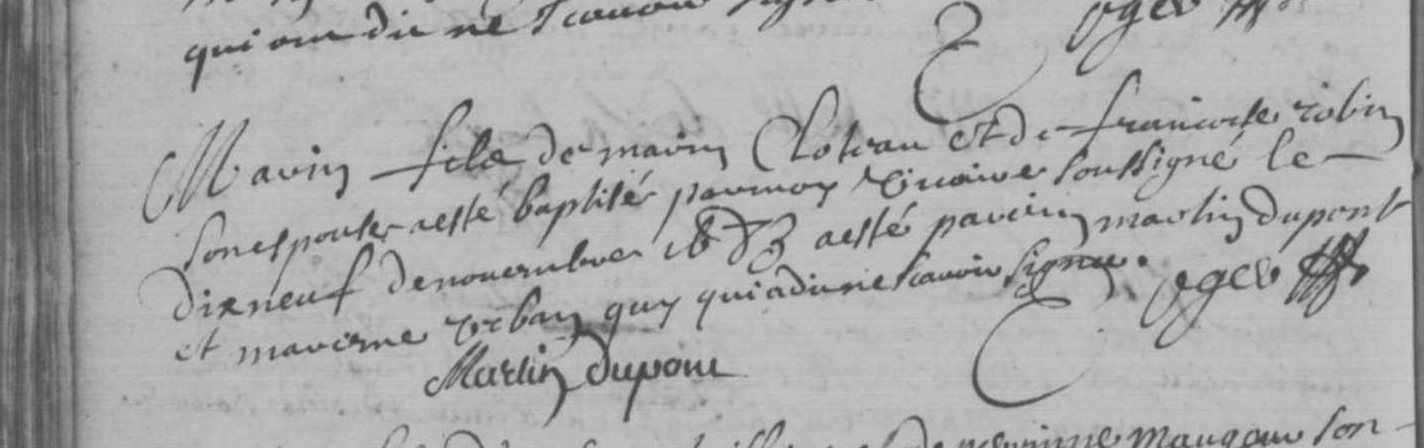 qui ont dit ne scavoir
oger
Marin fils de marin Cloteau et de francoise robin
son espouse a esté baptisé par moy vicaire soussigné le
dixneuf de novembre 1673 a esté parain martin dupont
et maraine urbany guy qui a dit ne scavoir signer. oger
Martin dupont
son